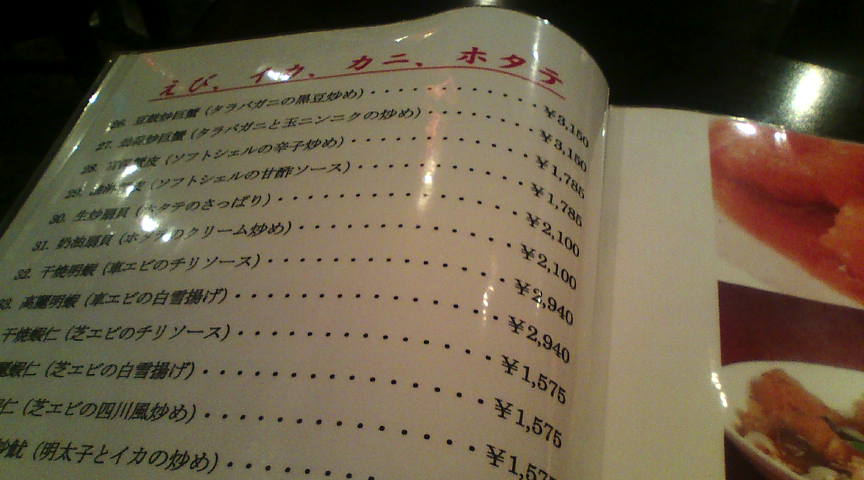 えび、イカ、カニ、ホタテ
26. 豆豉炒巨蟹 (タラバガニの黒豆炒め) ¥3,150
27. 炒巨蟹 (タラバガニと玉ニンニクの炒め) ¥3,150
28. (ソフトシェルの辛子炒め) ¥1,785
29. (ソフトシェルの甘酢ソース) ¥1,785
30. 生炒扇貝 (ホタテのさっぱり) ¥2,100
31. 奶油扇貝 (ホタテのクリーム炒め) ¥2,100
32. 干焼明蝦 (車エビのチリソース) ¥2,940
高麗明蝦 (車エビの白雪揚げ) ¥2,940
干焼蝦仁 (芝エビのチリソース) ¥1,575
蝦仁 (芝エビの白雪揚げ) ¥1,575
仁 (芝エビの四川風炒め) ¥1,57
(明太子とイカの炒め)